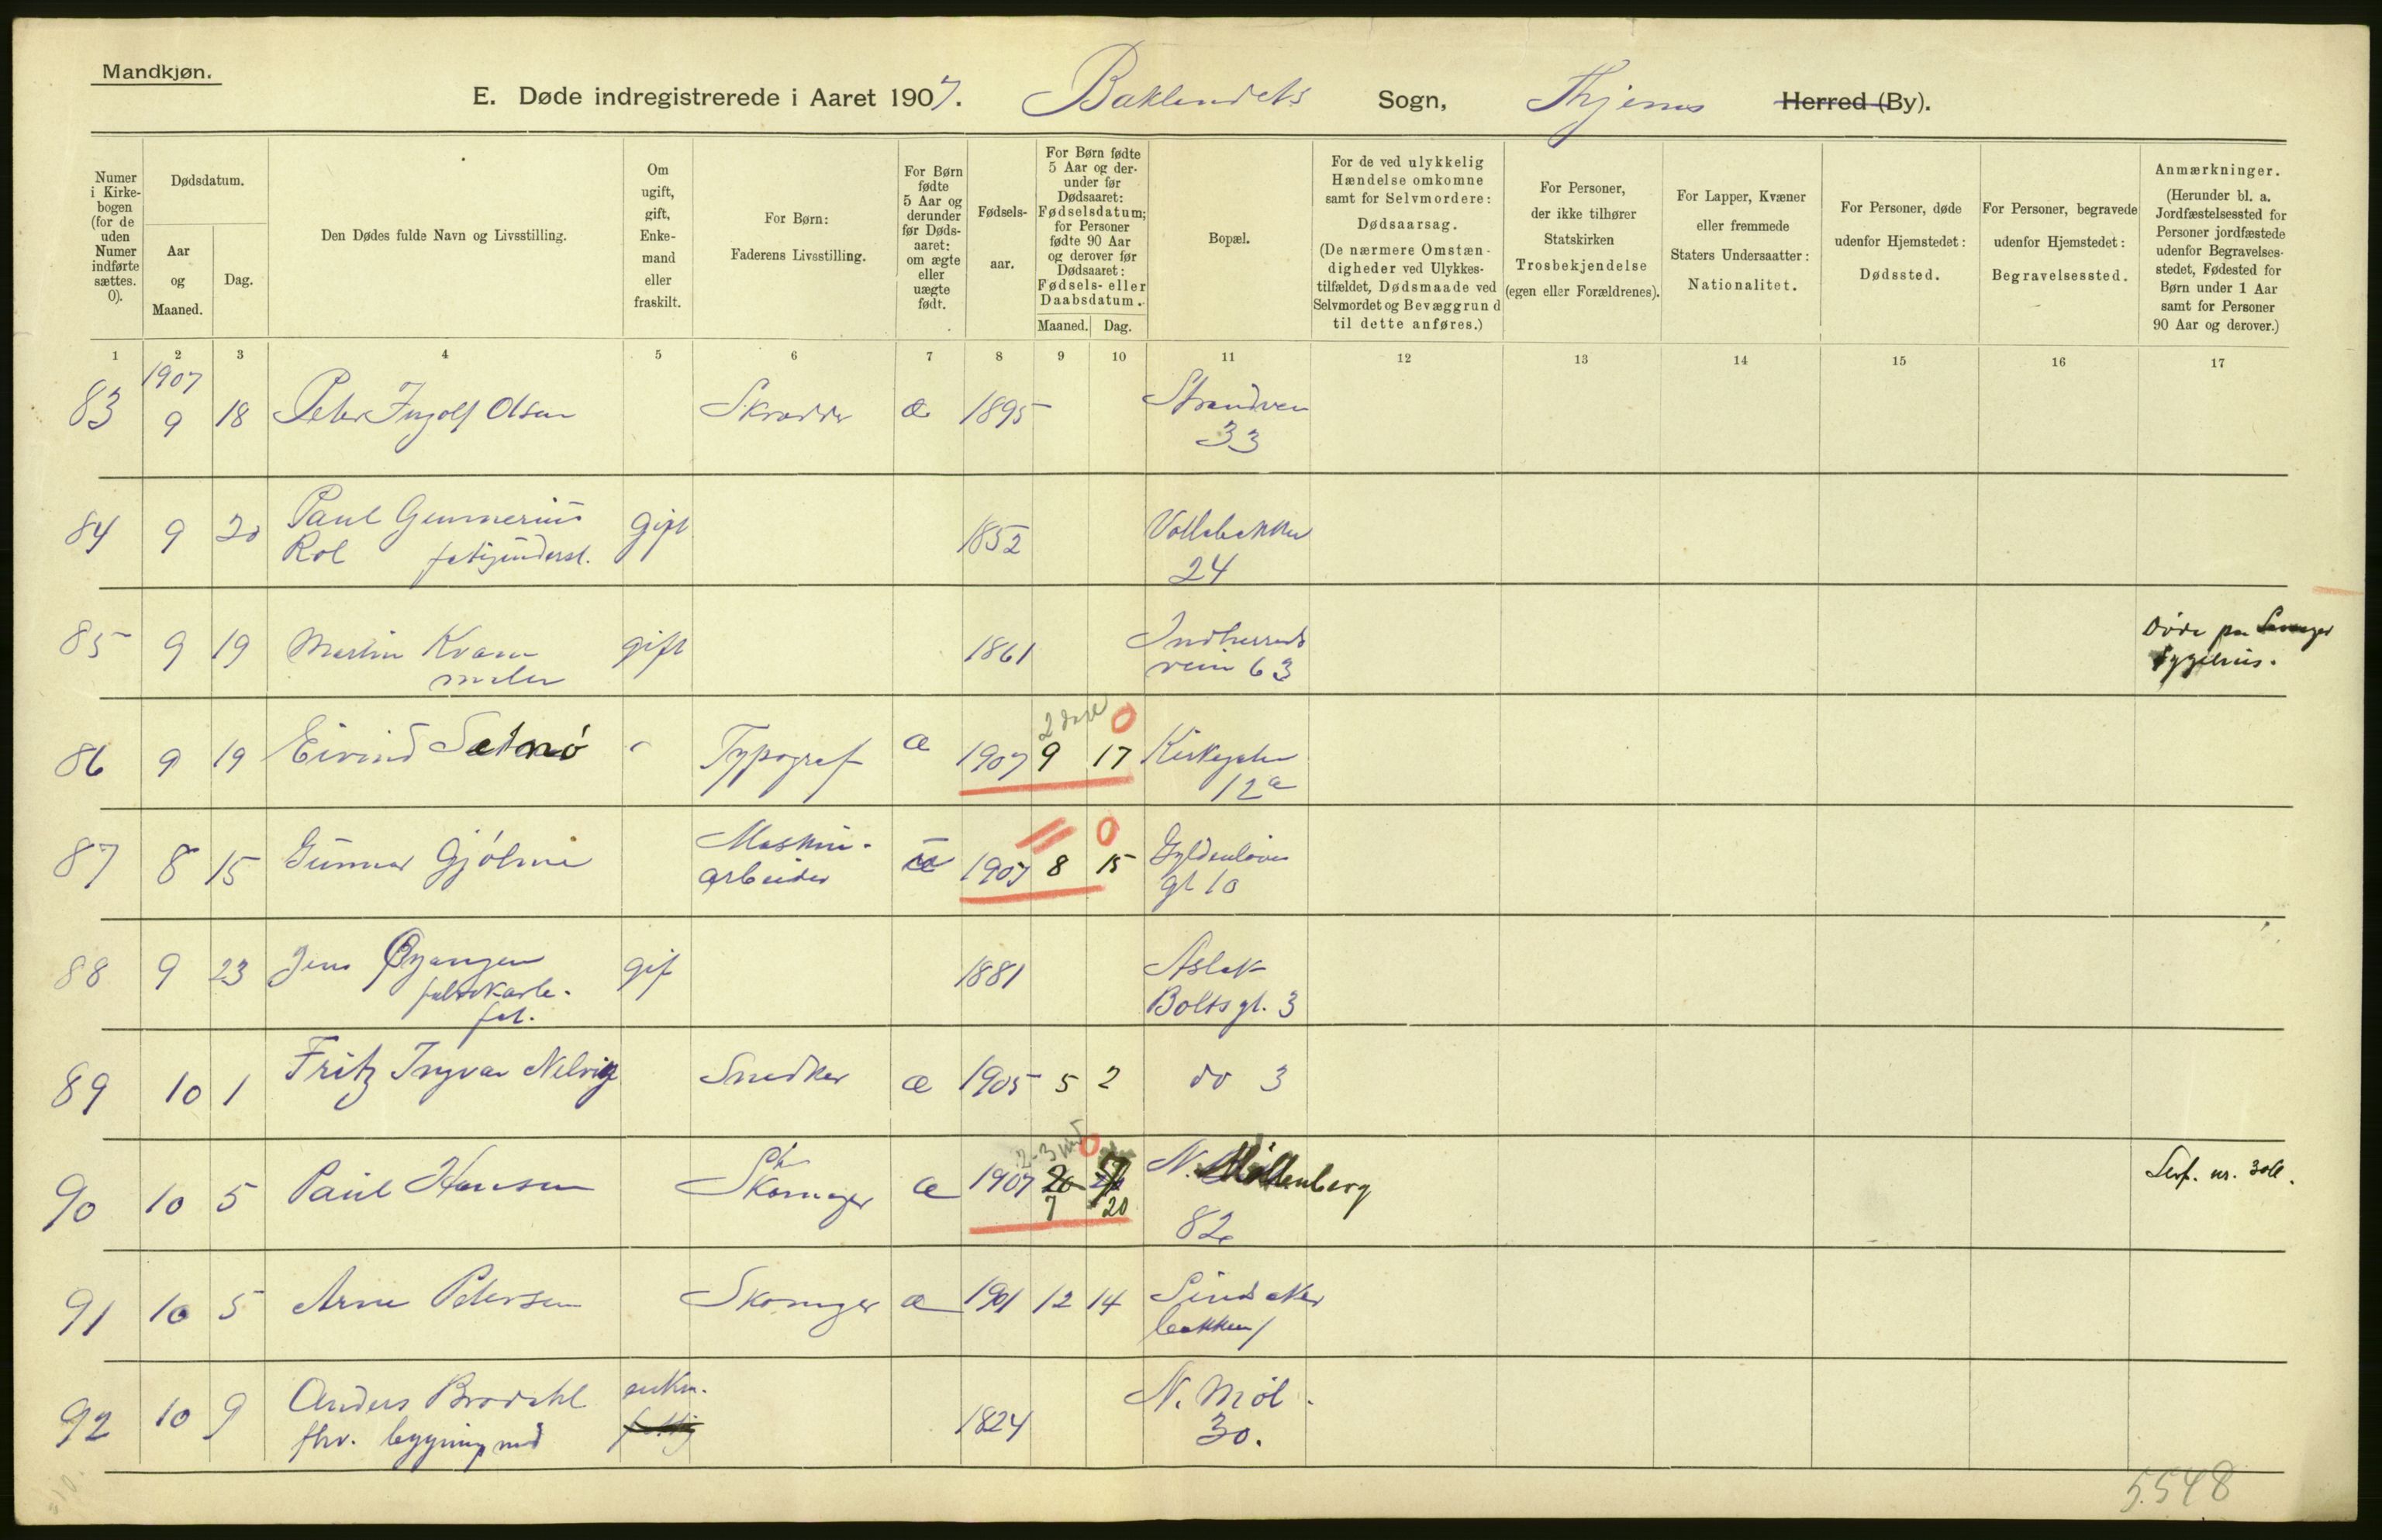 Mandkjøn.
E. Døde indregistrerede i Aaret 1907. Baklandets Sogn, Thjems Herred (By).
Numer i Kirke-bogen (for de uden Numer indførte sættes. 0).
Dødsdatum.
Aar og Maaned.
Dag.
Den Dødes fulde Navn og Livsstilling.
Om ugift, gift, Enke-mand eller fraskilt.
For Børn:
Faderens Livsstilling.
For Børn fødte 5 Aar og derunder før Døds-aaret: om ægte eller uægte født.
Fødsels-aar.
For Børn fødte 5 Aar og der-under før Dødsaaret: Fødselsdatum; for Personer fødte 90 Aar og derover før Dødsaaret: Fødsels- eller Daabsdatum.
Maaned. Dag.
Bopæl.
For de ved ulykkelig Hændelse omkomne samt for Selvmordere:
Dødsaarsag.
(De nærmere Omstæn-digheder ved Ulykkes-tilfældet, Dødsmaade ved Selvmordet og Bevæggrund til dette anføres.)
For Personer, der ikke tilhører Statskirken
Trosbekjendelse
(egen eller Forældrenes).
For Lapper, Kvæner eller fremmede Staters Undersaatter:
Nationalitet.
For Personer, døde udenfor Hjemstedet:
Dødssted.
For Personer, begravede udenfor Hjemstedet:
Begravelsessted.
Anmærkninger.
(Herunder bl. a. Jordfæstelsessted for Personer jordfæstede udenfor Begravelses-stedet, Fødested for Børn under 1 Aar samt for Personer 90 Aar og derover.)
1 2 3 4 5 6 7 8 9 10 11 12 13 14 15 16 17
1907
83 9 18 Peter Ingolf Olsen Skrædder æ 1895 Strandvei
33
84 9 20 Paul Gunnerius gift 1852 Vollabakken
Rol fattigunderst. 24
85 9 19 Martin Kvam gift 1861 Indherreds Døde paa
maler vein 63 sygehus.
2 dage 0
86 9 19 Eivind Sætnø Typograf æ 1907 9 17 Kirkegaten
12a
0
87 8 15 Gunnar Gjølme Maskin- 1907 8 15 Gyldenløves
arbeider gt 10
88 9 23 Jens Øyangen gif 1881 Aslak
fabrikarb. Boltsgt. 3
89 10 1 Fritz Ingvar Nelvig Snedker æ 1905 5 2 do 3
2-3 md 0
90 10 5 Paul Hansen Skomager æ 1907 N. Møllenberg
7 20 82
91 10 5 Arne Petersen Skomager æ 1901 12 14 Sindsaker
bakken 1
92 10 9 Anders Brodahl enkm. 1824 N. Møl.
fhv. bygningsmd 30.
5548